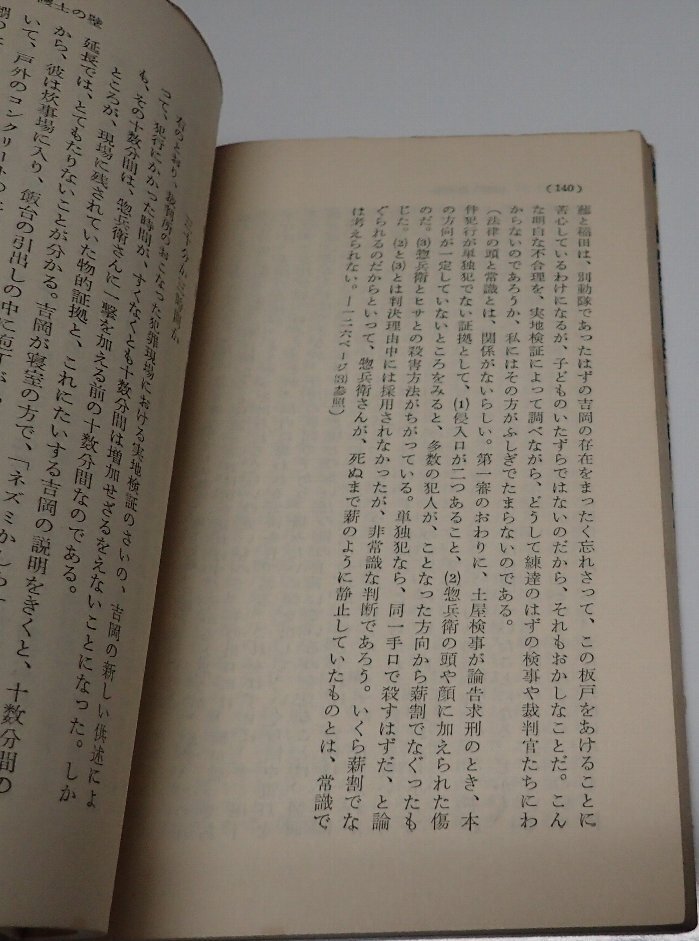 (140)
藤と稲田は、別動隊であったはずの吉岡の存在をまったく忘れさって、この板戸をあけることに
苦心しているわけになるが、子どものいたずらではないのだから、それもおかしなことだ。こん
な明白な不合理を、実地検証によって調べながら、どうして練達のはずの検事や裁判官たちにわ
からないのであろうか、私にはその方がふしぎでたまらないのである。
（法律の頭と常識とは、関係がないらしい。第一審のおわりに、土屋検事が論告求刑のとき、本
件犯行が単独犯でない証拠として、(1)侵入口が二つあること、(2)惣兵衛の頭や顔に加えられた傷
の方向が一定していないところをみると、多数の犯人が、ことなった方向から薪割でなぐったも
のだ。(3)惣兵衛とヒサとの殺害方法がちがっている。単独犯なら、同一手口で殺すはずだ、と論
じた。(2)と(3)とは判決理由中には採用されなかったが、非常識な判断であろう。いくら薪割でな
ぐられるのだからといって、惣兵衛さんが、死ぬまで薪のように静止していたものとは、常識で
は考えられない。―一二六ページ(3)参照）
右のとおり、裁判所のおこなった犯罪現場における実地検証のさいの、吉岡の新しい供述によ
って、犯行にかかった時間が、すくなくとも十数分間は増加せざるをえないことになった。しか
も、その十数分間は、惣兵衛さんに一撃を加える前の十数分間なのである。
ところが、現場に残されていた物的証拠と、これにたいする吉岡の説明をきくと、十数分間の
延長では、とてもたりないことが分かる。吉岡が寝室の方で、「ネズミかんらす
から、彼は炊事場に入り、飯台の引出しの中に庖丁が
いて、戸外のコンクリートの
士の壁